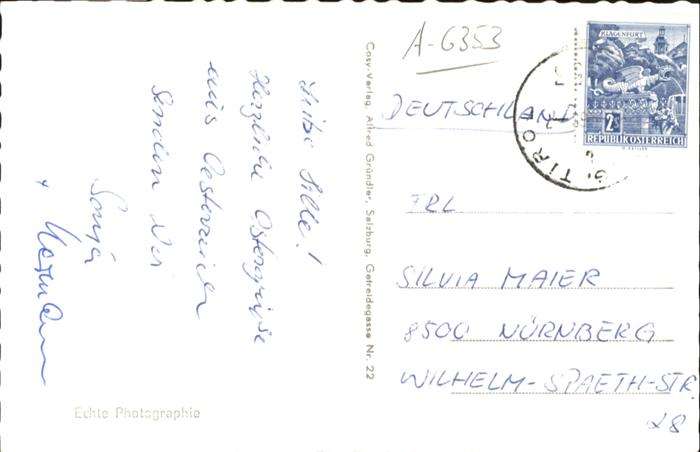 Liebe Silke!
Herzliche Ostergrüße
aus Oesterreich
senden Dir
Sonja
+
Echte Photographie
Cosy-Verlag, Alfred Gründler, Salzburg, Getreidegasse Nr. 22
A-6353
KLAGENFURT
2S
REPUBLIK ÖSTERREICH
TIROL
DEUTSCHLAND
FRL
SILVIA MAIER
8500 NÜRNBERG
WILHELM-SPAETH-STR.
28